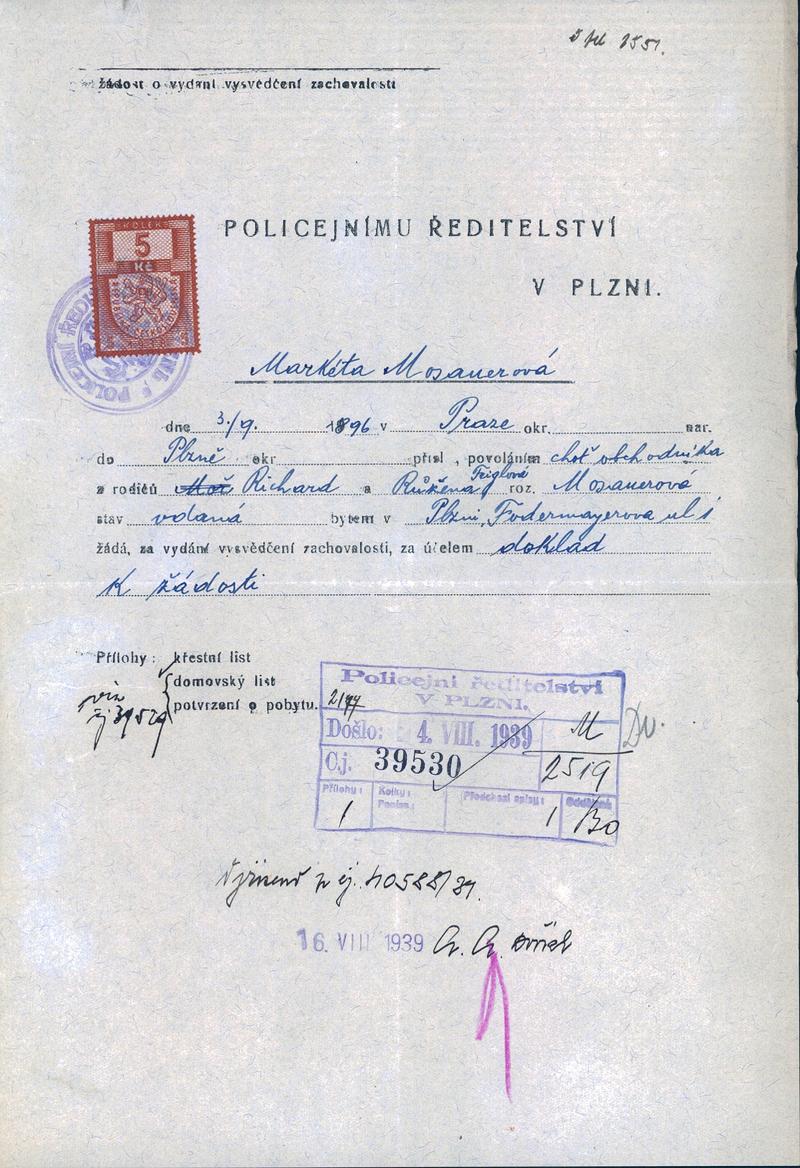 žádost o vydání vysvědčení zachovalosti
5
Kč
POLICEJNÍMU ŘEDITELSTVÍ
V PLZNI.
Markéta Mosauerová
dne 3./9. 1896 v Praze okr. nar.
do Plzně okr přísl , povoláním choť obchodníka
z rodičů Richard a Růžena Feiglová roz. Mosauerová
stav vdaná bytem v Plzni, Fodermayerova ul 1
žádá, za vydání vysvědčení zachovalosti, za účelem doklad
k žádosti
Přílohy : křestní list
domovský list
potvrzení o pobytu.
Policejní ředitelství
V PLZNI.
Došlo: 4. VIII. 1939 M
Čj. 39530 2519
Přílohy: Kolky: Předchozí spisy:
1 1
16. VIII 1939